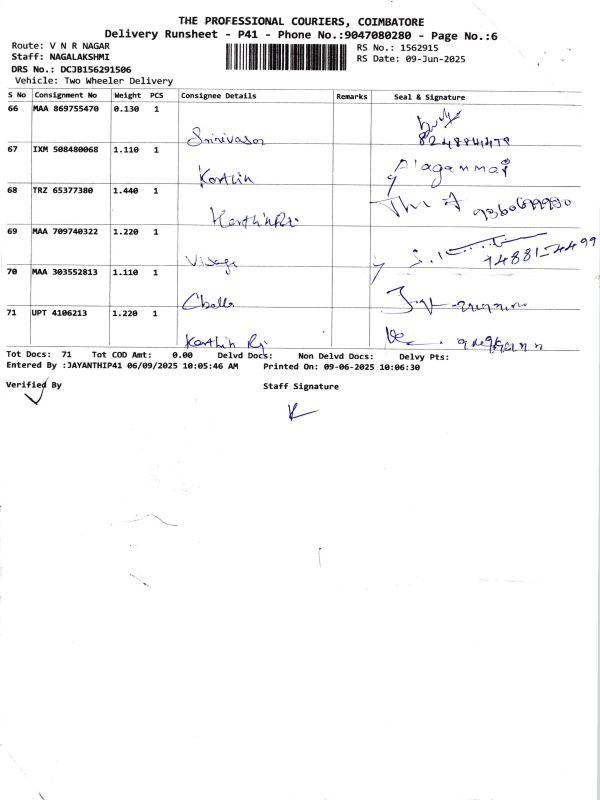 THE PROFESSIONAL COURIERS, COIMBATORE
Delivery Runsheet - P41 - Phone No.:9047080280 - Page No.:6
Route: V N R NAGAR RS No.: 1562915
Staff: NAGALAKSHMI RS Date: 09-Jun-2025
DRS No.: DCJB156291506
Vehicle: Two Wheeler Delivery
S No Consignment No Weight PCS Consignee Details Remarks Seal & Signature
66 MAA 869755470 0.130 1
Srinivasan
67 IXM 508480068 1.110 1 Alagammai
Karthin
68 TRZ 65377380 1.440 1
69 MAA 709740322 1.220 1
70 MAA 303552813 1.110 1
71 UPT 4106213 1.220 1
Karthin Rj
Tot Docs: 71 Tot COD Amt: 0.00 Delvd Docs: Non Delvd Docs: Delvy Pts:
Entered By :JAYANTHIP41 06/09/2025 10:05:46 AM Printed On: 09-06-2025 10:06:30
Verified By Staff Signature